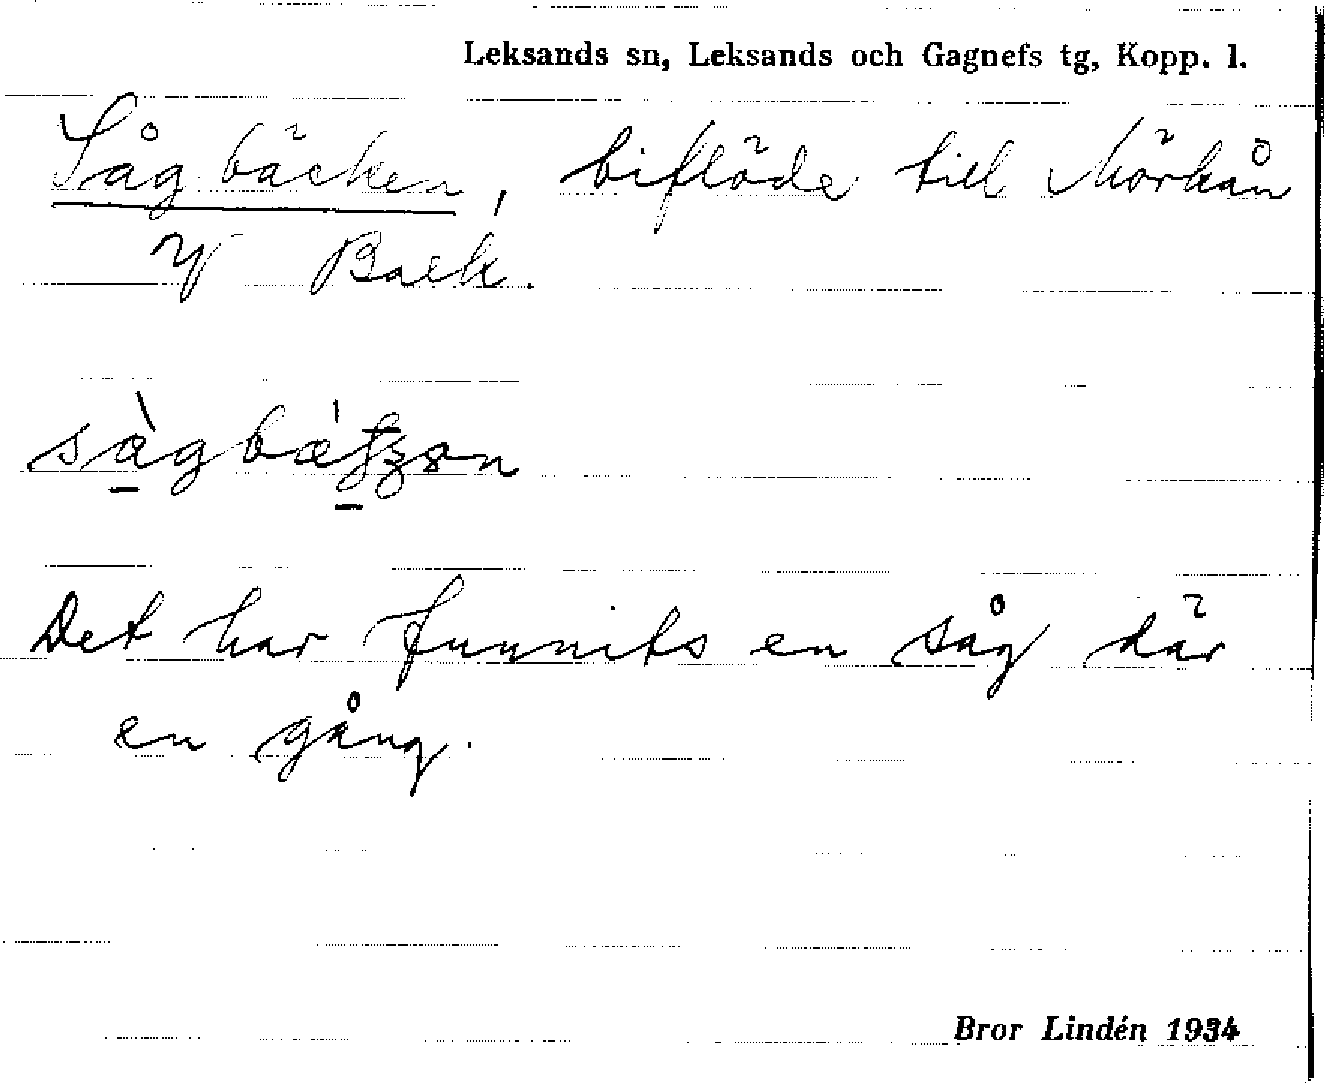 Leksands sn, Leksands och Gagnefs tg, Kopp. l.
Sågbäcken, biflöde till Mörkån
Back.
Det har funnits en såg där
en gång.
Bror Lindén 1934